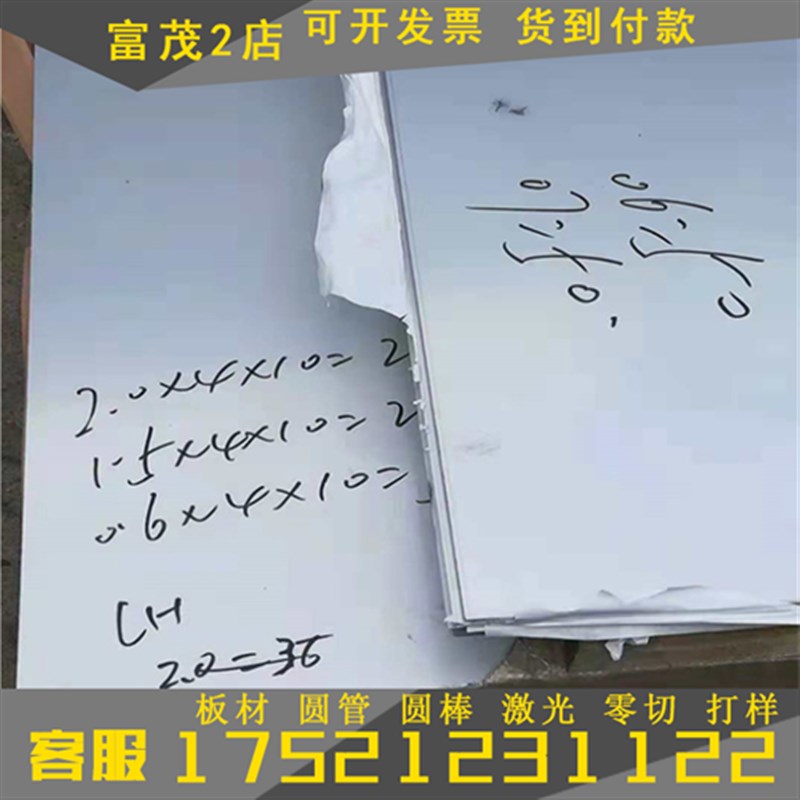 富茂2店 可开发票 货到付款
2.0×4×10=2
1.5×4×10=2
0.6×4×10=
LH
2.0=36
板材 圆管 圆棒 激光 零切 打样
客服 17521231122